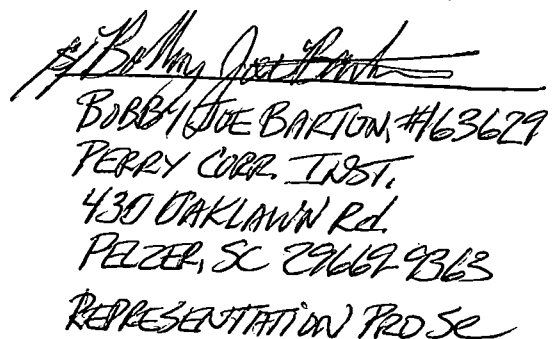 s/ Bobby Joe Barton
BOBBY JOE BARTON, #163629
PERRY CORR. INST.
430 OAKLAWN Rd.
PELZER, SC 29669-9363
REPRESENTATION PRO Se